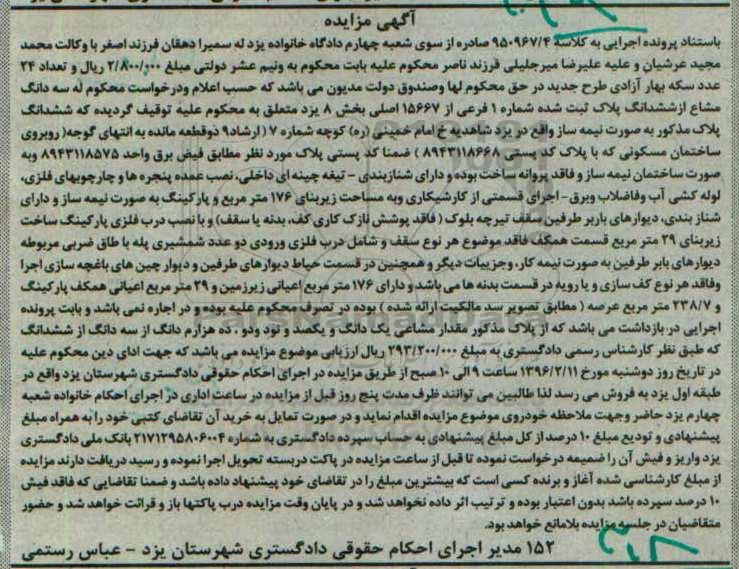 آگهی مزایده
باستناد پرونده اجرایی به کلاسه ۹۵۰۹۶۷/۴ صادره از سوی شعبه چهارم دادگاه خانواده یزد له سمیرا دهقان فرزند اصغر با وکالت محمد
مجید عرشیان و علیه علیرضا میرجلیلی فرزند ناصر محکوم علیه بابت محکوم به ونیم عشر دولتی مبلغ ۲/۸۰۰/۰۰۰ ریال و تعداد ۲۴
عدد سکه بهار آزادی طرح جدید در حق محکوم لها وصندوق دولت مدیون می باشد که حسب اعلام ودرخواست محکوم له سه دانگ
مشاع ازششدانگ پلاک ثبت شده شماره ۱ فرعی از ۱۵۶۶۷ اصلی بخش ۸ یزد متعلق به محکوم علیه توقیف گردیده که ششدانگ
پلاک مذکور به صورت نیمه ساز واقع در یزد شاهدیه خ امام خمینی (ره) کوچه شماره ۷ (ارشاد۹ دوقطعه مانده به انتهای گوچه( روبروی
ساختمان مسکونی که با پلاک کد پستی ۸۹۴۳۱۱۸۶۶۸ ) ضمنا کد پستی پلاک مورد نظر مطابق فیض برق واحد ۸۹۴۳۱۱۸۵۷۵ وبه
صورت ساختمان نیمه ساز و فاقد پروانه ساخت بوده و دارای شنازبندی - تیغه چینه ای داخلی، نصب عمده پنجره ها و چارچوبهای فلزی،
لوله کشی آب وفاضلاب وبرق- اجرای قسمتی از کارشیکاری وبه مساحت زیربنای ۱۷۶ متر مربع و پارکینگ به صورت نیمه ساز و دارای
شناز بندی، دیوارهای باربر طرفین سقف تیرچه بلوک ( فاقد پوشش نازک کاری کف، بدنه یا سقف) و با نصب درب فلزی پارکینگ ساخت
زیربنای ۲۹ متر مربع قسمت همکف فاقد موضوع هر نوع سقف و شامل درب فلزی ورودی دو عدد شمشیری پله با طاق ضربی مربوطه
دیوارهای بابر طرفین به صورت نیمه کار، وجزییات دیگر و همچنین در قسمت حیاط دیوارهای طرفین و دیوار چین های باغچه سازی اجرا
وفاقد هر نوع کف سازی و یا رویه در قسمت بدنه ها می باشد و دارای ۱۷۶ متر مربع اعیانی زیرزمین و ۲۹ متر مربع اعیانی همکف پارکینگ
و ۲۳۸/۷ متر مربع عرصه ( مطابق تصویر سند مالکیت ارائه شده ) بوده در تصرف محکوم علیه بوده و در اجاره نمی باشد و بابت پرونده
اجرایی در بازداشت می باشد که از پلاک مذکور مقدار مشاعی یک دانگ و یکصد و نود ودو . ده هزارم دانگ از سه دانگ از ششدانگ
که طبق نظر کارشناس رسمی دادگستری به مبلغ ۲۹۳/۲۰۰/۰۰۰ ریال ارزیابی موضوع مزایده می باشد که جهت ادای دین محکوم علیه
در تاریخ روز دوشنبه مورخ ۱۳۹۶/۲/۱۱ ساعت ۹ الی ۱۰ صبح از طریق مزایده در اجرای احکام حقوقی دادگستری شهرستان یزد واقع در
طبقه اول یزد به فروش می رسد لذا طالبین می توانند ظرف مدت پنج روز قبل از مزایده در ساعت اداری در اجرای احکام خانواده شعبه
چهارم یزد حاضر وجهت ملاحظه خودروی موضوع مزایده اقدام نماید و در صورت تمایل به خرید آن تقاضای کتبی خود را به همراه مبلغ
پیشنهادی و تودیع مبلغ ۱۰ درصد از کل مبلغ پیشنهادی به حساب سپرده دادگستری به شماره ۲۱۷۱۲۹۵۸۰۶۰۰۴ بانک ملی دادگستری
یزد واریز و فیش آن را ضمیمه درخواست نموده تا قبل از ساعت مزایده در پاکت دربسته تحویل اجرا نموده و رسید دریافت دارند مزایده
از مبلغ کارشناسی شده آغاز و برنده کسی است که بیشترین مبلغ را در تقاضای خود پیشنهاد داده باشد و ضمنا تقاضایی که فاقد فیش
۱۰ درصد سپرده باشد بدون اعتبار بوده و ترتیب اثر داده نخواهد شد و در پایان وقت مزایده درب پاکتها باز و قرائت خواهد شد و حضور
متقاضیان در جلسه مزایده بلامانع خواهد بود.
۱۵۲ مدیر اجرای احکام حقوقی دادگستری شهرستان یزد - عباس رستمی